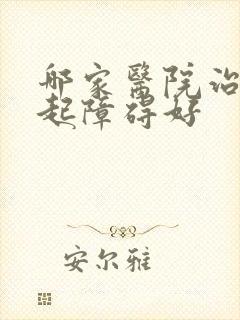 郍家醫院治
起障碍好
安尔雅